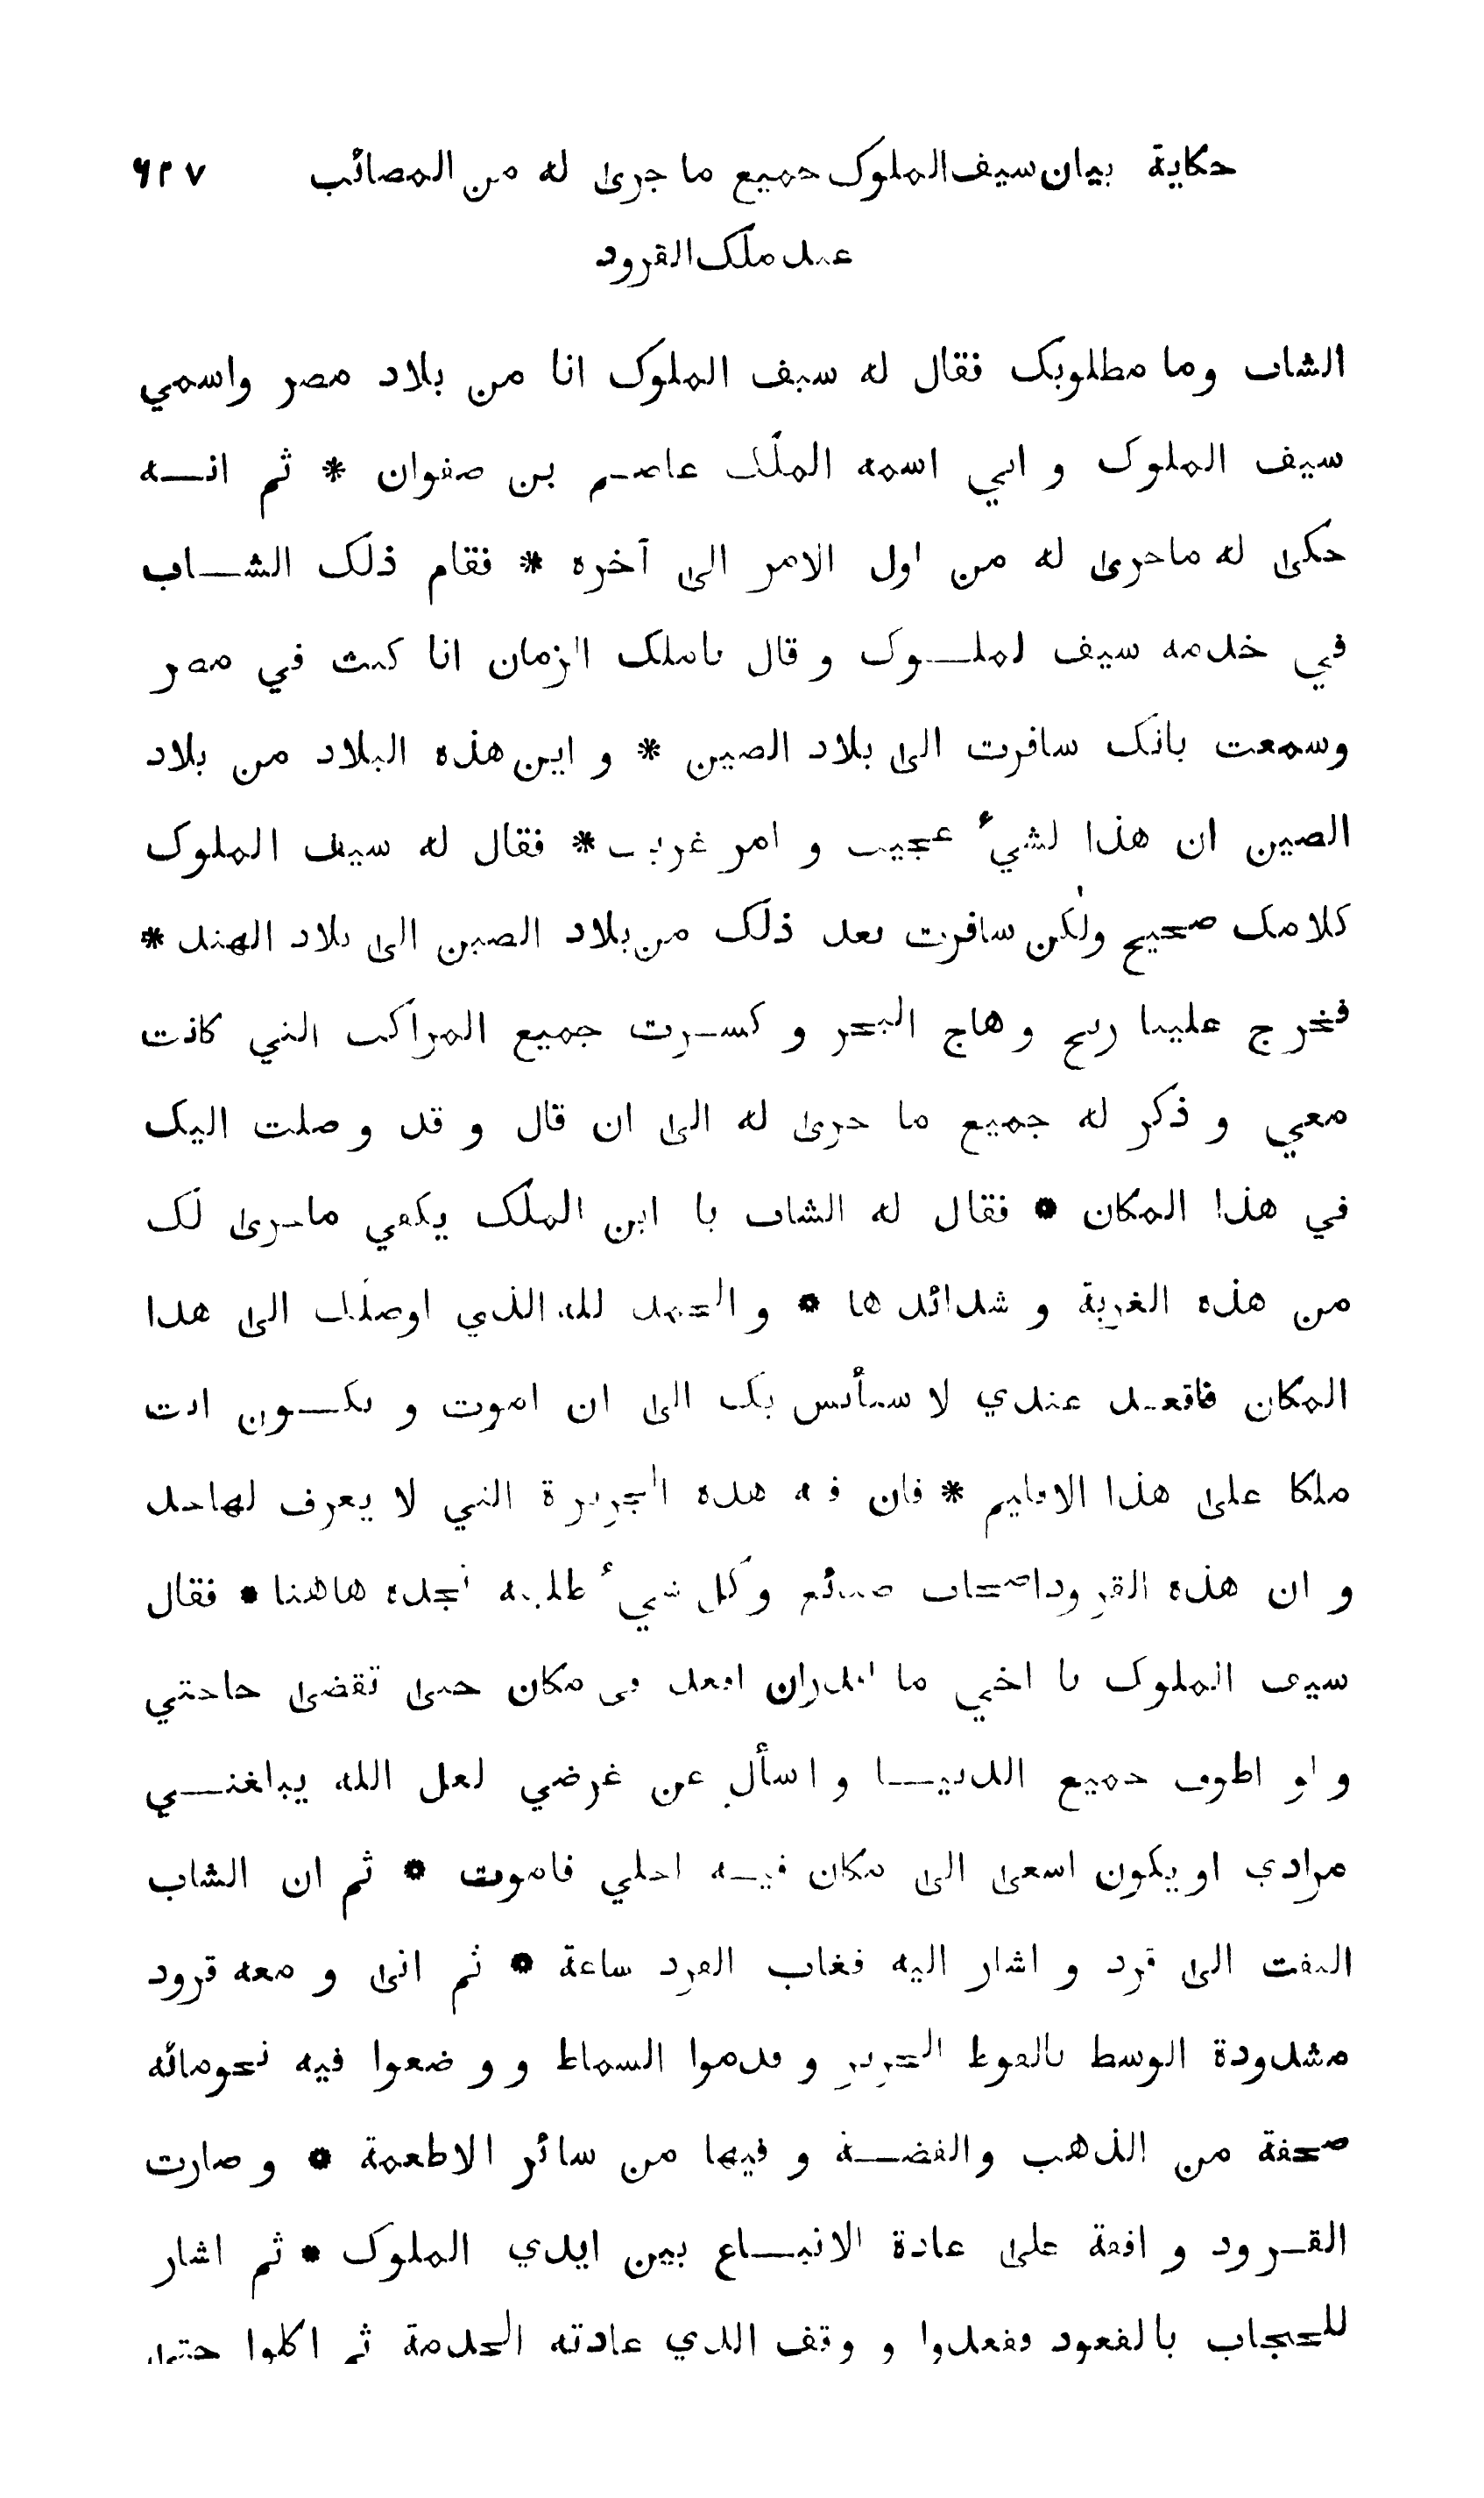 حكاية بيان سيف الملوك جميع ما جرى له من المصائب ٦٢٧
عند ملك القرود
الشاب وما مطلوبك فقال له سيف الملوك انا من بلاد مصر واسمي
سيف الملوك و ابي اسمه الملك عاصم بن صفوان * ثم انـــه
حكى له ماجرى له من اول الامر الى آخره * فقام ذلك الشـــاب
في خدمة سيف الملـــوك و قال ياملك الزمان انا كنت في مصر
وسمعت بانك سافرت الى بلاد الصين * و اين هذه البلاد من بلاد
الصين ان هذا لشيءٌ عجيب و امر غريب * فقال له سيف الملوك
كلامك صحيح ولكن سافرت بعد ذلك من بلاد الصين الى بلاد الهند *
فخرج علينا ريح و هاج البحر و كســرت جميع المراكب التي كانت
معي و ذكر له جميع ما جرى له الى ان قال و قد وصلت اليك
في هذا المكان * فقال له الشاب يا ابن الملك يكفي ماجرى لك
من هذه الغربة و شدائدها * و الحمد لله الذي اوصلك الى هذا
المكان فاقعــد عندي لاستأنس بك الى ان اموت و تكـــون انت
ملكا على هذا الاقليم * فان في هذه الجزيرة التي لا يعرف لهاحد
و ان هذه القرود اصحاب صنائع و كل شيءٌ طلبته تجده هاهنا * فقال
سيف الملوك يا اخي ما اقدران اقعد في مكان حتى تقضى حاجتي
و لو اطوف جميع الدنيـــا و اسأل عن غرضي لعل الله يبلغنـــي
مرادي او يكون اسعى الى مكان فيــه اجلي فاموت * ثم ان الشاب
التفت الى قرد و اشار اليه فغاب القرد ساعة * ثم اتى و معه قرود
مشدودة الوسط بالفوط الحرير و قدموا السماط و وضعوا فيه نحومائة
صحفة من الذهب والفضـــة و فيها من سائر الاطعمة * و صارت
القــرود واقفة على عادة الاتبـــاع بين ايدي الملوك * ثم اشار
للحجاب بالقعود فقعدوا و وقف الذي عادته الخدمة ثم اكلوا حتى